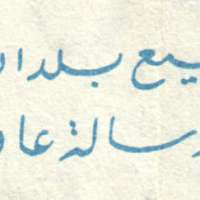 يع بلدا
رسالة عا